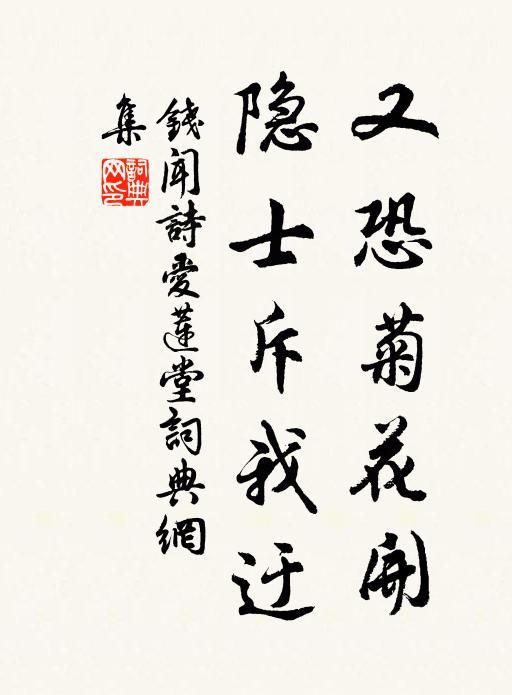 又恐菊花開
隐士斥我迂
錢聞詩愛蓮堂詞典網
集
詞典網印